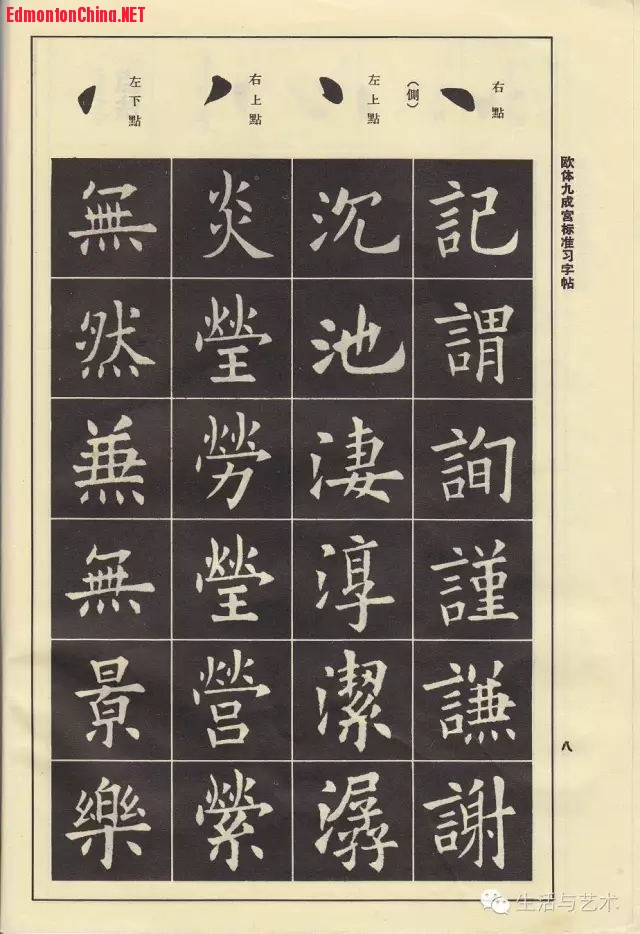 EdmontonChina.NET
欧体九成宫标准习字帖
八
右點
(側)
左上點
右上點
左下點
記謂詢謹謙謝
沉池淒淳潔潺
炎瑩勞瑩營縈
無然兼無景樂
生活与艺术